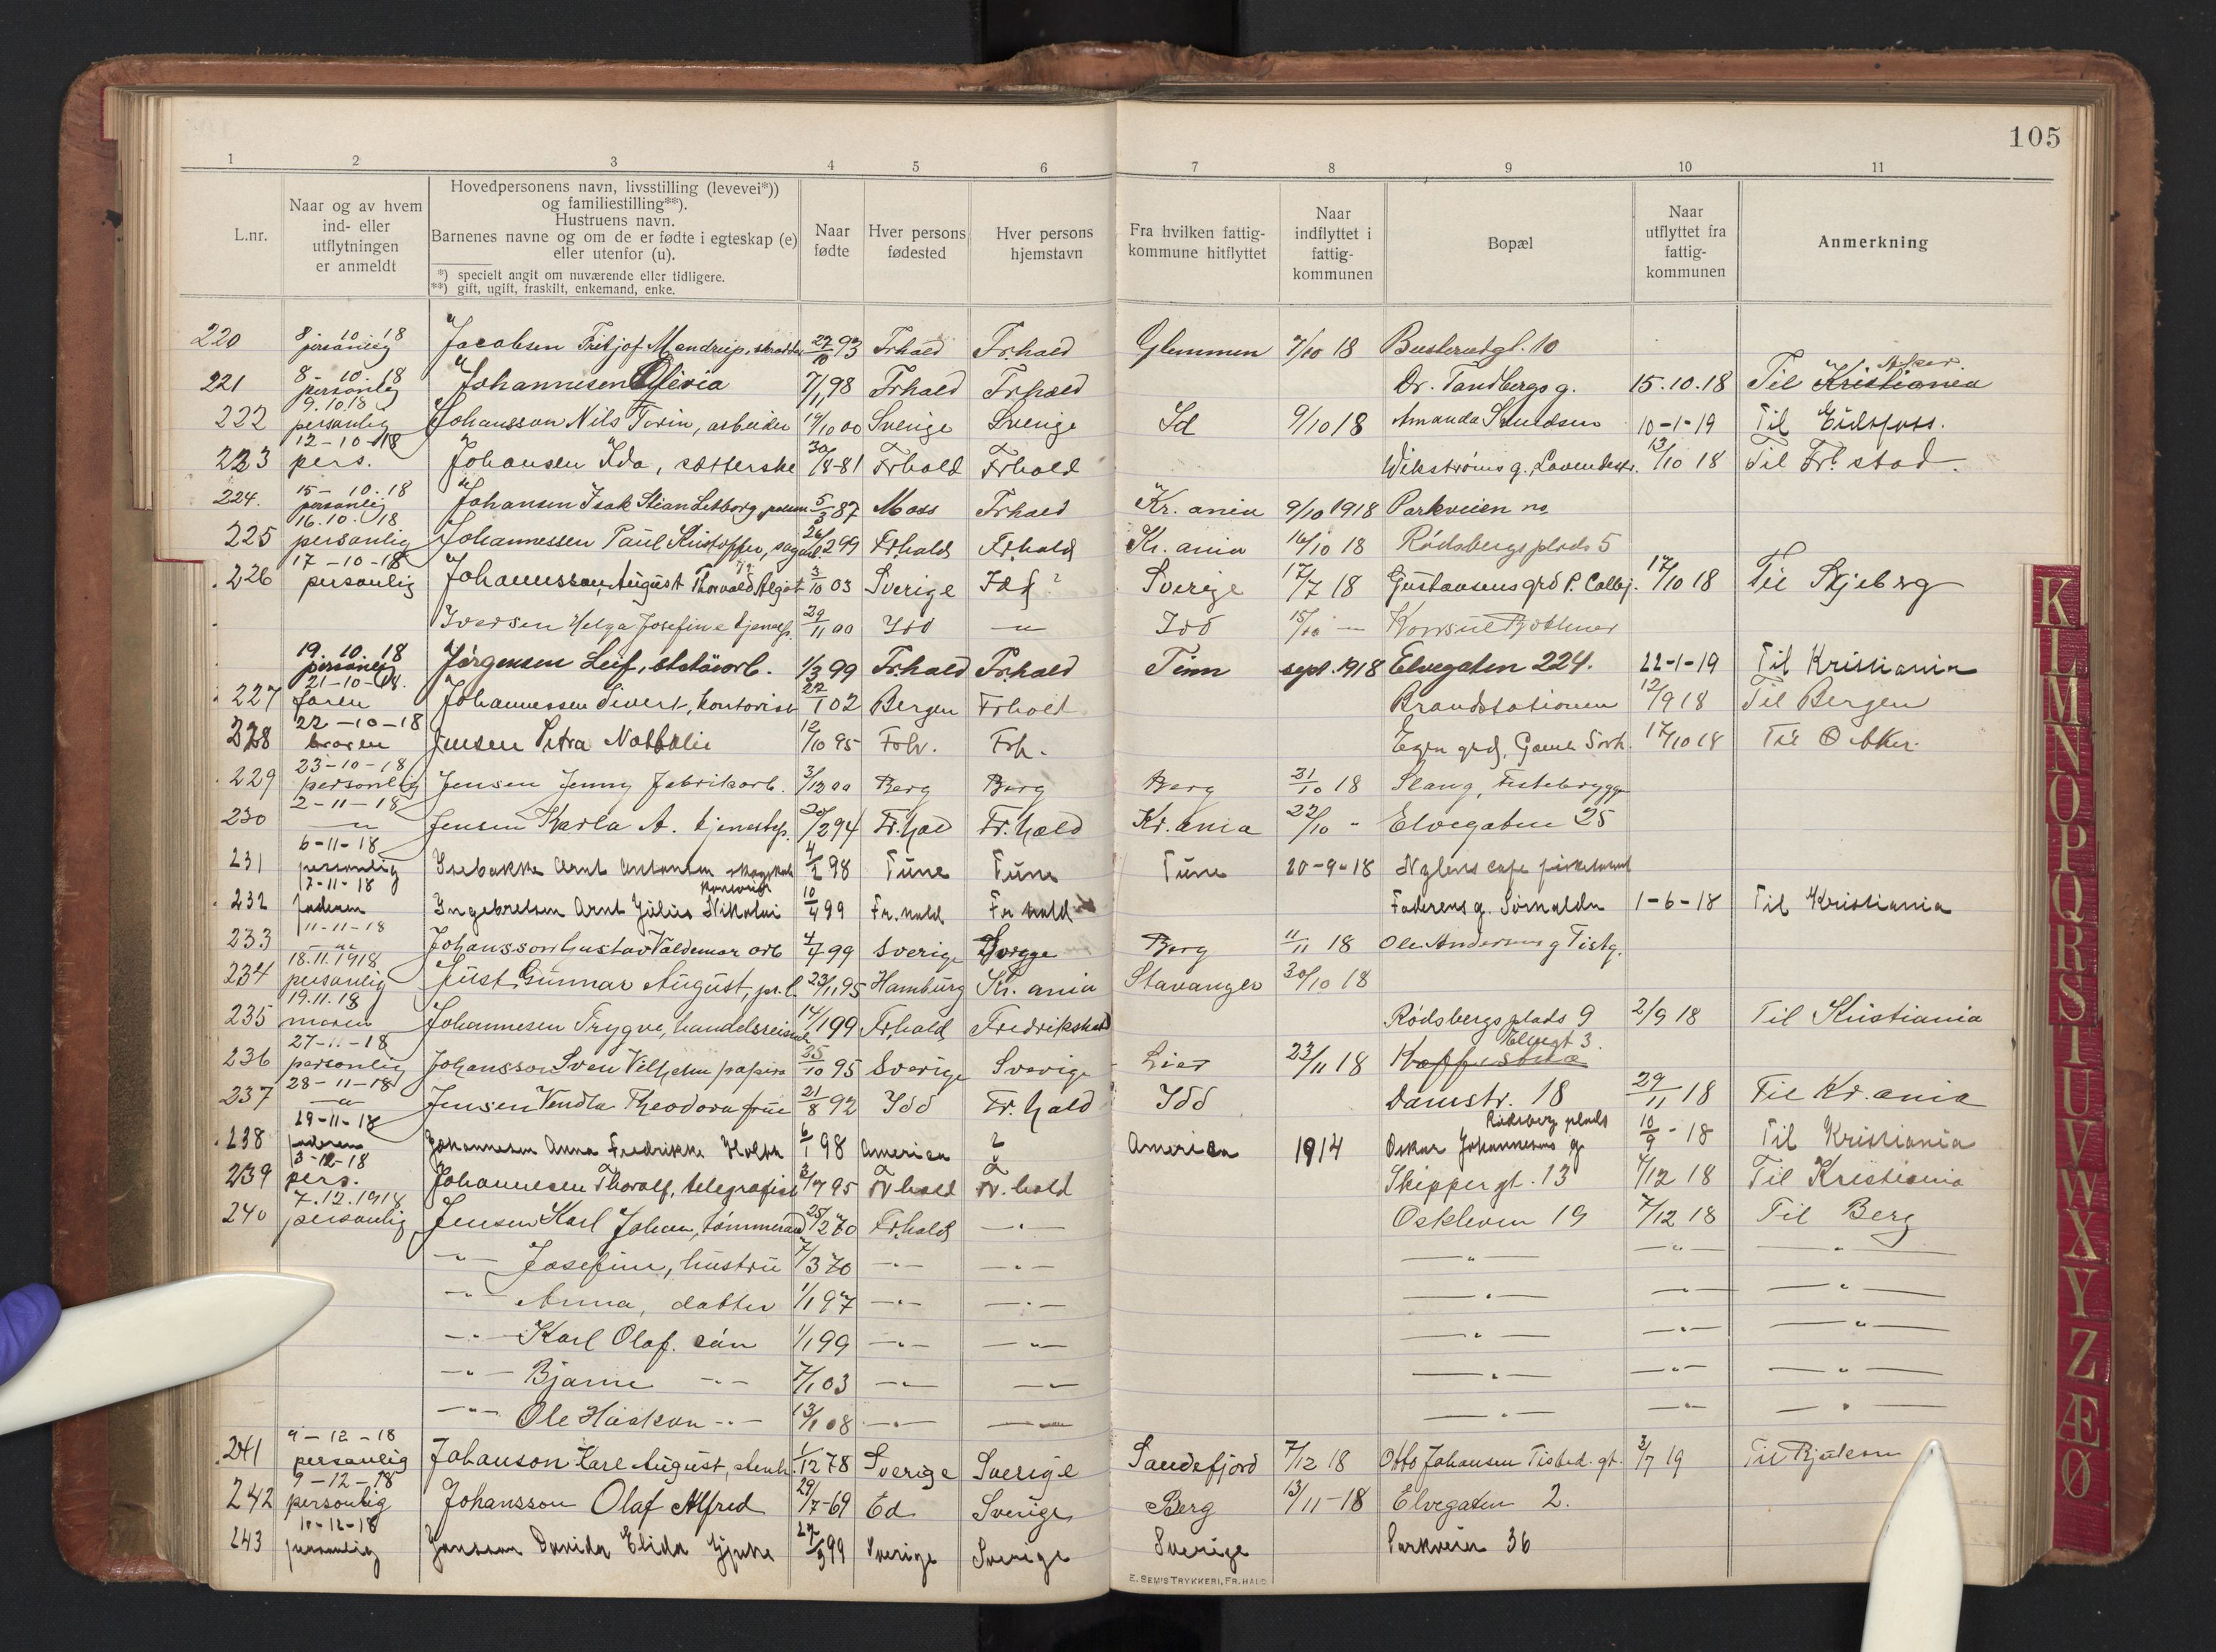 105
1 2 3 4 5 6 7 8 9 10 11
L.nr.
Naar og av hvem ind- eller utflytningen er anmeldt
Hovedpersonens navn, livsstilling (levevei*)) og familiestilling**).
Hustruens navn.
Barnenes navne og om de er fødte i egteskap (e) eller utenfor (u).
*) specielt angit om nuværende eller tidligere.
**) gift, ugift, fraskilt, enkemand, enke.
Naar fødte
Hver persons fødested
Hver persons hjemstavn
Fra hvilken fattigkommune hitflyttet
Naar indflyttet i fattigkommunen
Bopæl
Naar utflyttet fra fattigkommunen
Anmerkning
220 8-10-18 personlig Jacobsen Fritjof Mandrup, 27/10 93 Frhald Fr.hald Glemmen 7/10 18 Busterudgt. 10
221 8-10-18 personlig Johannesen Olivia 7/1 98 Frhald Frhald Dr. Tandbergs g. 15.10.18 Til Kristiania Asker
222 9.10.18 personlig Johansson Nils Torin, arbeider 19/10 00 Sverige Sverige Id 9/10 18 Amanda 10-1-19 Til Eidsfoss.
223 12-10-18 pers. Johansen Ida, sætterske 30/8-81 Frhald Frhald Wikstrøms g. 13/10 18 Til Fr.stad.
224. 15-10-18 personlig Johansen Isak Stian 5/3-87 Moss Frhald Kr.ania 9/10 1918 Parkveien no
225 16.10.18 personlig Johannessen Paul Kristoffer, 26/2 99 Frhald Frhald Kr.ania 16/10 18 Rödsbergsplads 5
226 17-10-18 personlig Johannsson, August Thorvald Algot 3/10 03 Sverige Idd? Sverige 17/7 18 Gustavsens grd P. Colbj. 17/10 18 Til Skjeberg
Iversen Helga Josefine tjenestp. 29/11 00 Idd —"— Idd 15/10 — Konsul
19.10.18 personlig Jørgensen Leif, 1/3 99 Fr.hald Fr.hald Tinn sept. 1918 Elvegaten 224. 22-1-19 Til Kristiania
227 21-10-18. faren Johannessen Sivert, kontorist 22/1 02 Bergen Frhald Brandstationen 12/9 18 Til Bergen
228 22-10-18 broren Jensen Petra Nathalie 12/10 95 Frh. Frh. Egen grd, Gamle 17/10 18 Til
229 23-10-18 personlig Jensen Jenny fabrikarb. 3/12 00 Berg Berg Berg 21/10 18 Stang,
230 2-11-18 —"— Jensen Karla A. tjenestep. 20/2 94 Fr.hald Fr.hald Kr.ania 22/10 " Elvegaten 25
231 6-11-18 personlig Isebakke Arnt 4/2 98 Tune Tune Tune 20-9-18 Nylens cafe
232 7-11-18 faderen Ingebretsen Arnt Julius Nikolai kontorist 10/4 99 Fr.hald Fr.hald Faderens g. 1-6-18 Til Kristiania
233 11-11-18 —"— Johansson Gustav Valdemar arb 4/7 99 Sverige Berg 11/11 18 Ole Andersens g Tistg.
234 18.11.1918 personlig Just, Gunnar August, 23/11 95 Hamburg Kr.ania Stavanger 30/10 18
235 19.11.18 moren Johannesen Trygve, handelsreisende 14/1 99 Frhald Fredrikshald Rødsbergsplads 9 2/9 18 Til Kristiania
236 27-11-18 personlig Johansson Sven Vilhelm 25/10 95 Sverige Sverige Lier 23/11 18 Kaffistua Elvegt 3.
237 28-11-18 —"— Jensen Vendla Theodora frue 21/8 92 Idd Fr.hald Idd Damstr. 18 29/11 18 Til Kr.ania
238 29-11-18 faderen Johannesen Anna Fredrikke 6/1 98 America ? America 1914 Oskar Johannesens g. Rödsberg plads 10/9-18 Til Kristiania
239 3-12-18 pers. Johannesen Thorolf, telegrafist 3/7 95 Fr hald Fr. hald Skippergt. 13 7/12 18 Til Kristiania
240 7.12.1918 personlig Jensen Karl Johan, tømmermand 25/2 70 Frhald —"— Oskleven 19 7/12 18 Til Berg
—"— Josefine, hustru 7/3 70 —"— —"— —"— —"— —"—
—"— Anna, datter 1/1 97 —"— —"— —"— —"— —"—
—"— Karl Olaf. søn 1/1 99 —"— —"— —"— —"— —"—
—"— Bjarne —"— 7/1 03 —"— —"— —"— —"— —"—
—"— Ole Haakon —"— 13/1 08 —"— —"— —"— —"— —"—
241 9-12-18 personlig Johanson Karl August, 1/12 78 Sverige Sverige Sandefjord 7/12 18 Otto Johansen Tisted.gt. 3/7 19 Til
242 9-12-18 personlig Johansson Olaf Alfred 29/7-69 Ed Sverige Berg 13/11-18 Elvegaten 2.
243 10-12-18 personlig Davida Elida 27/3 99 Sverige Sverige Sverige Parkveien 36
E. SEM'S TRYKKERI, FR.HALD
K
L
M
N
O
P
Q
R
S
T
U
V
W
X
Y
Z
Æ
Ø